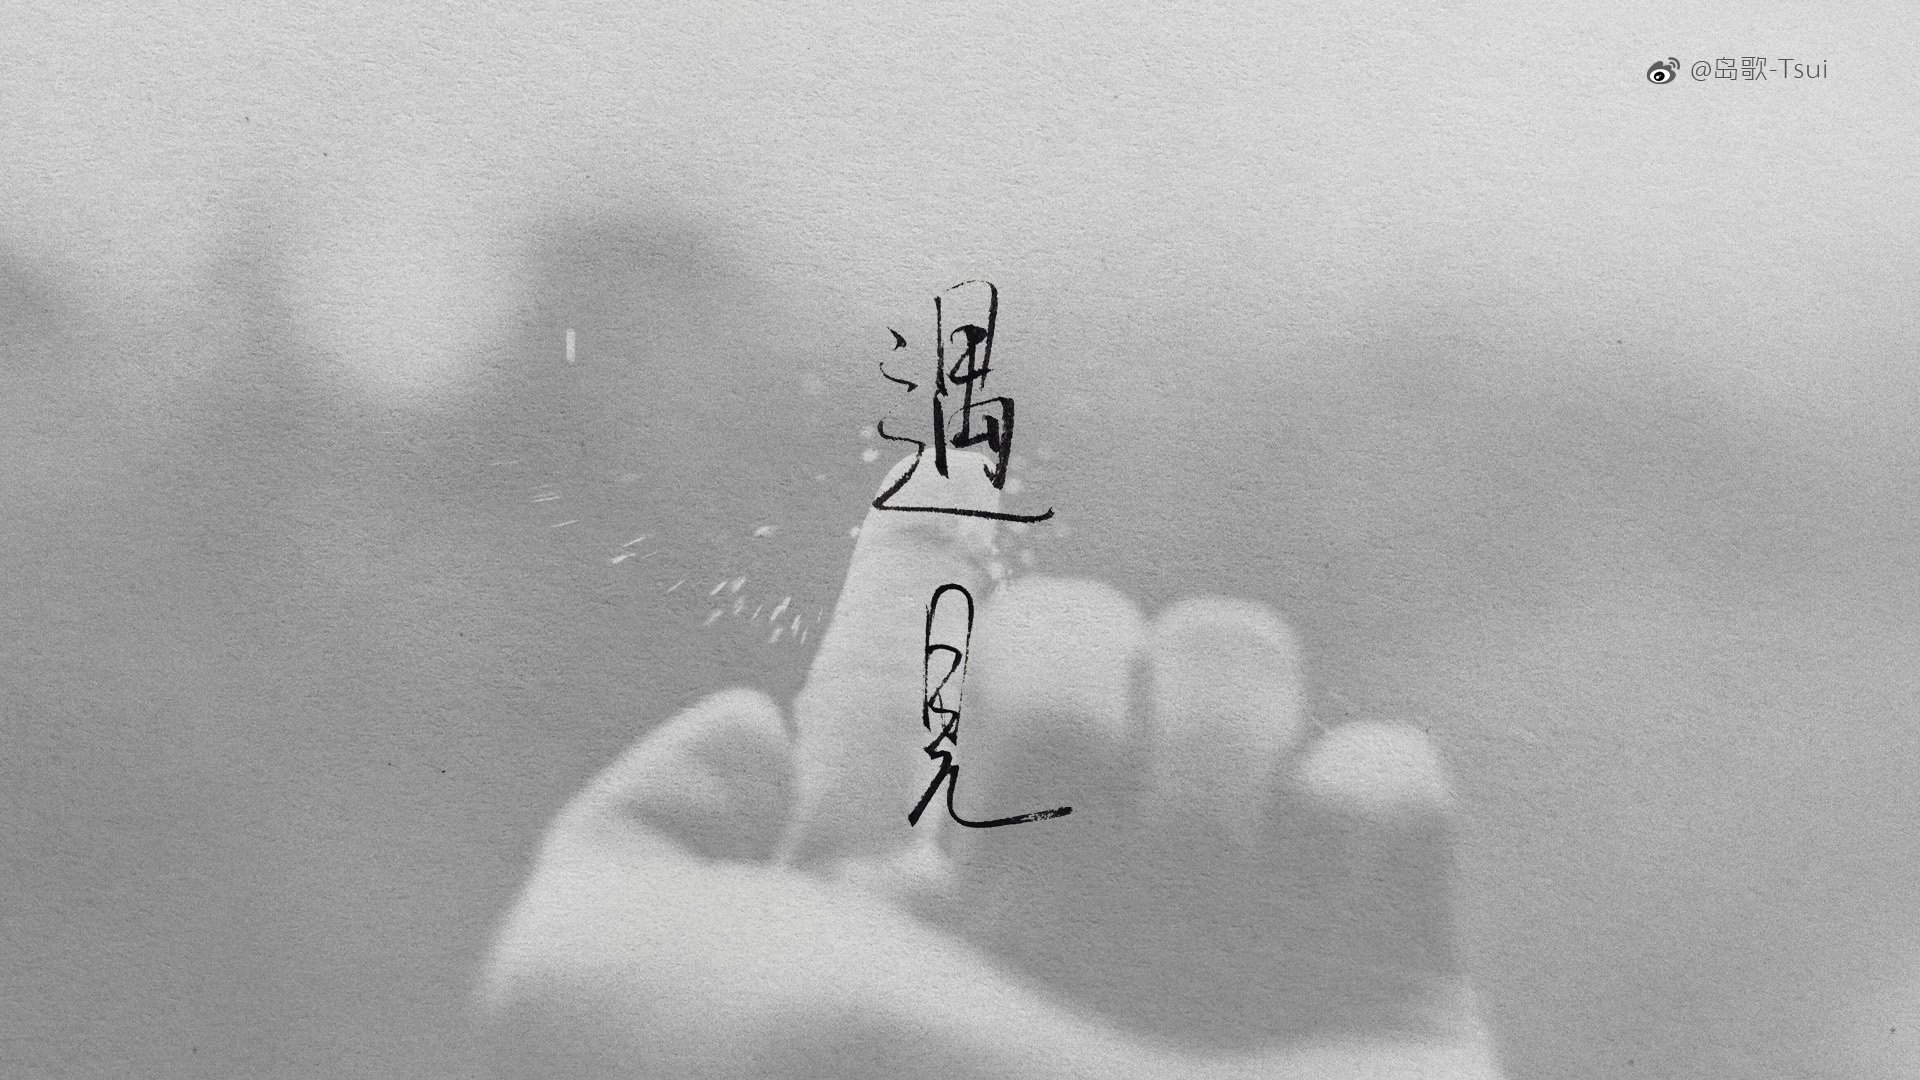 @岛歌-Tsui
遇
見